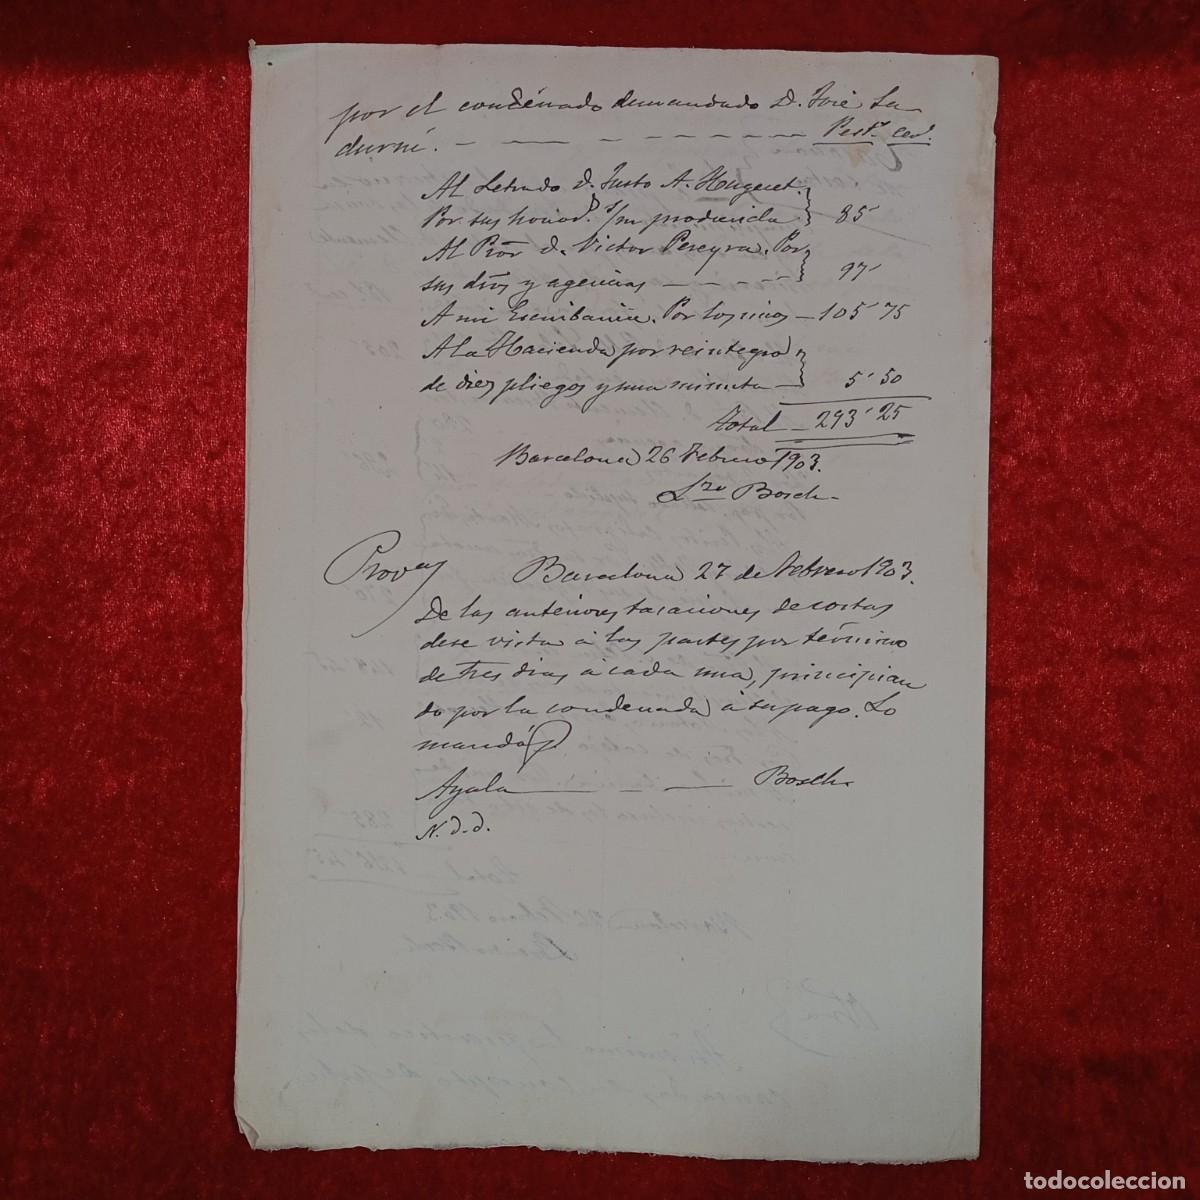 por el condenado demandado D. José Sa
durní. Peset.s cen.s
Al Letrado D. Justo A.
Por sus honor.s s/m producida 85'
Al Pror D. Victor Pereyra. Por
sus dros y agencias 97'
A mi Escribanía. Por los mios 105'75
A la Hacienda por reintegro
de diez pliegos y una minuta 5'50
total 293'25
Barcelona 26 Febrero 1903.
Lzo Bosch
Prov.a Barcelona 27 de Febrero 1903.
De las anteriores tasaciones de costas
dese vista á las partes por término
de tres dias á cada una, principian
do por la condenada á su pago. Lo
mandó
Ayala Bosch
N. d. d.
todocoleccion